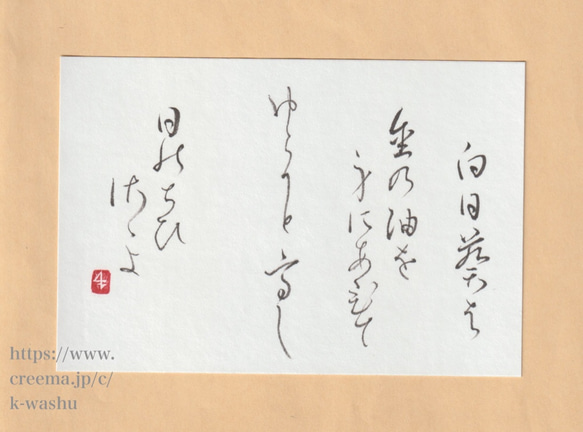 向日葵は
金の油を
身にあびて
ゆらりと高し
日のちひ
さゝよ
https://www.
creema.jp/c/
k-washu